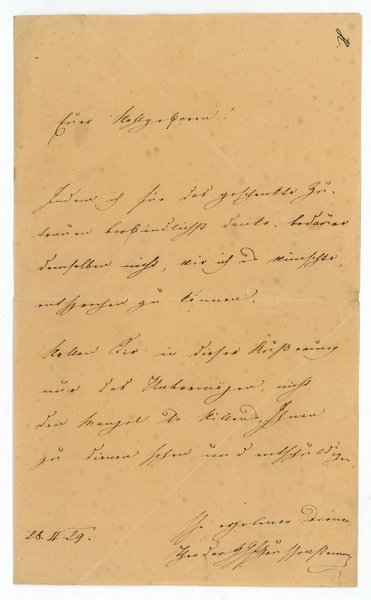 Euer Wohlgeboren!
Indem ich für das geschenkte Zu-
trauen verbindlichst danke, bedaure
demselben nicht, wie ich es wünschte,
entsprechen zu können.
Wollen Sie in dieser Äußerung
nur das Unvermögen, nicht
den Mangel des Willens, Ihnen
zu dienen sehen und entschuldigen.
Ihr ergebener Diener
28. 29.